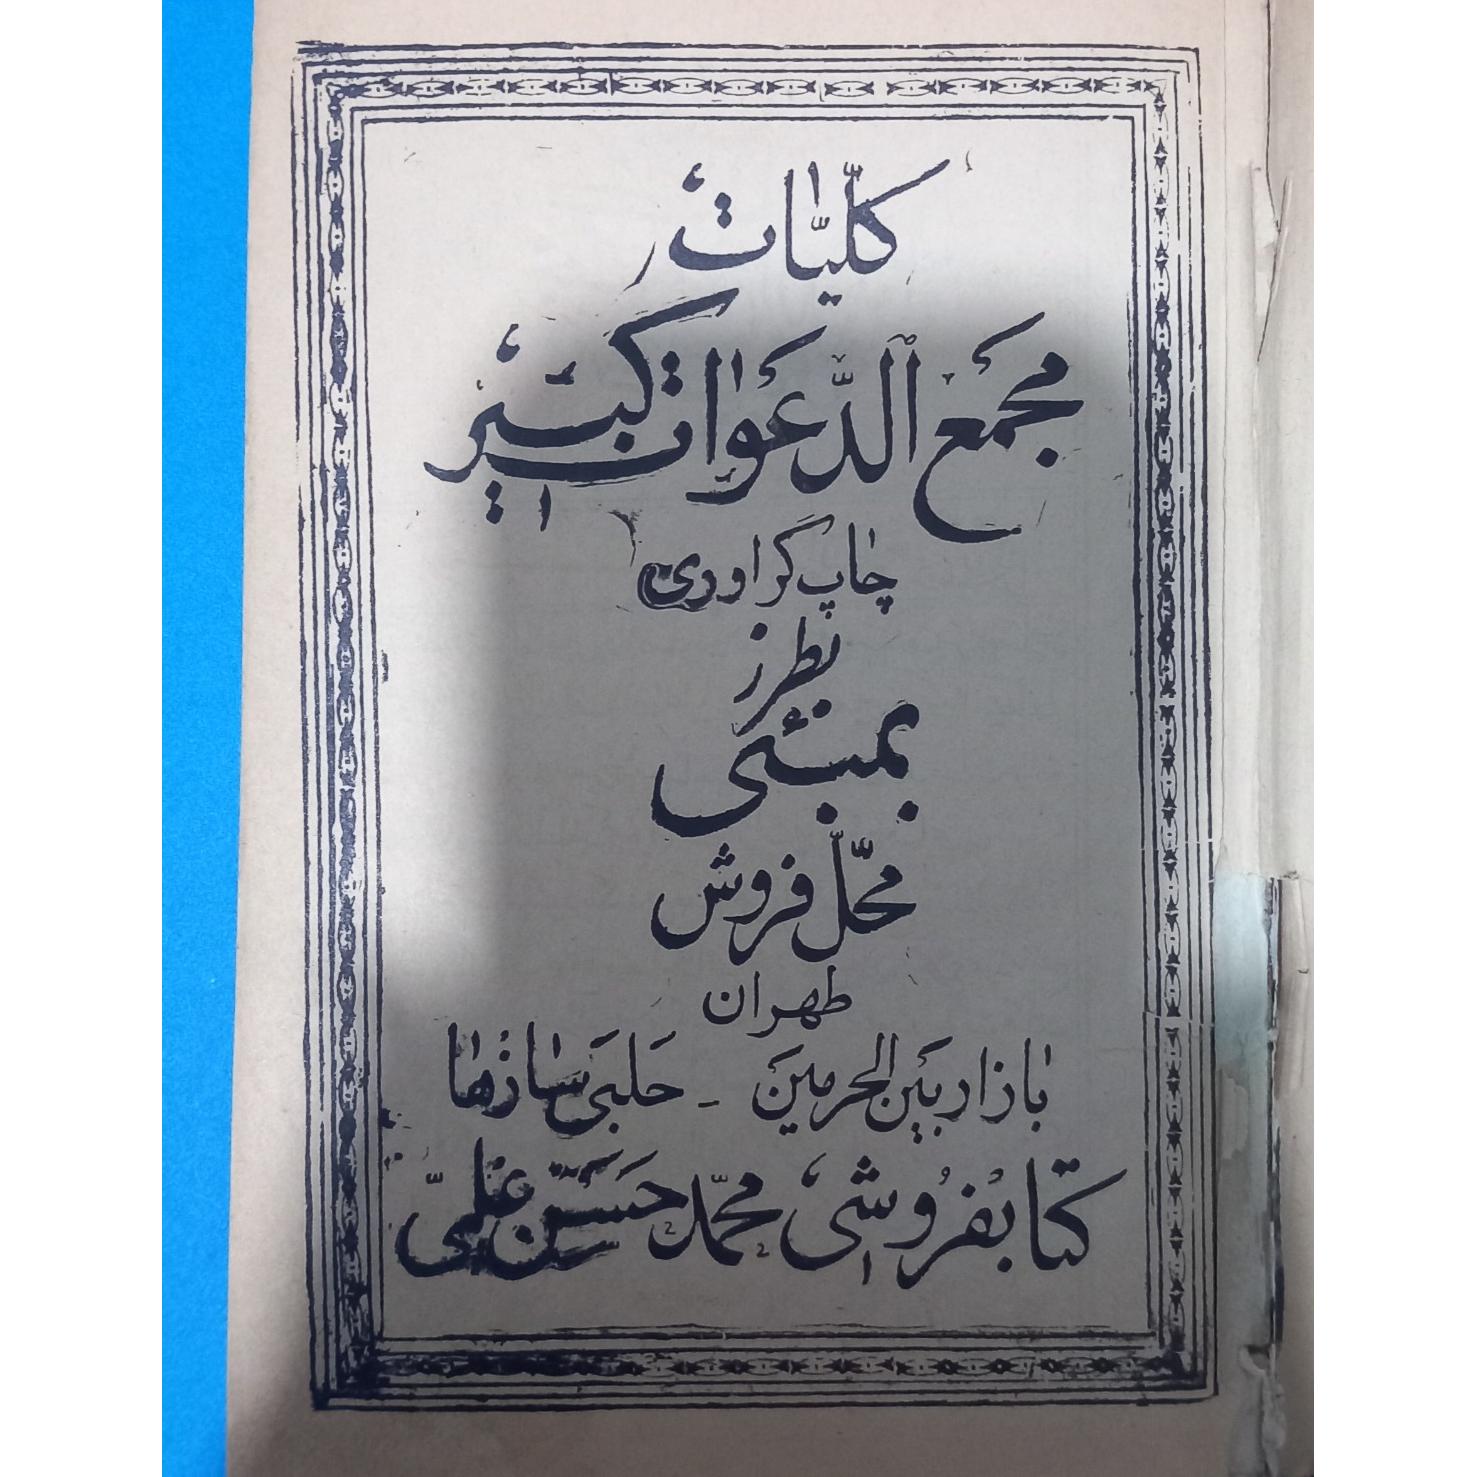 کلّیّات
مجمع الدّعوات کبیر
چاپ گراوری
بطرز
بمبئی
محلّ فروش
طهران
بازار بین الحرمین - حلبی سازها
کتابفروشی محمّد حسن علمی